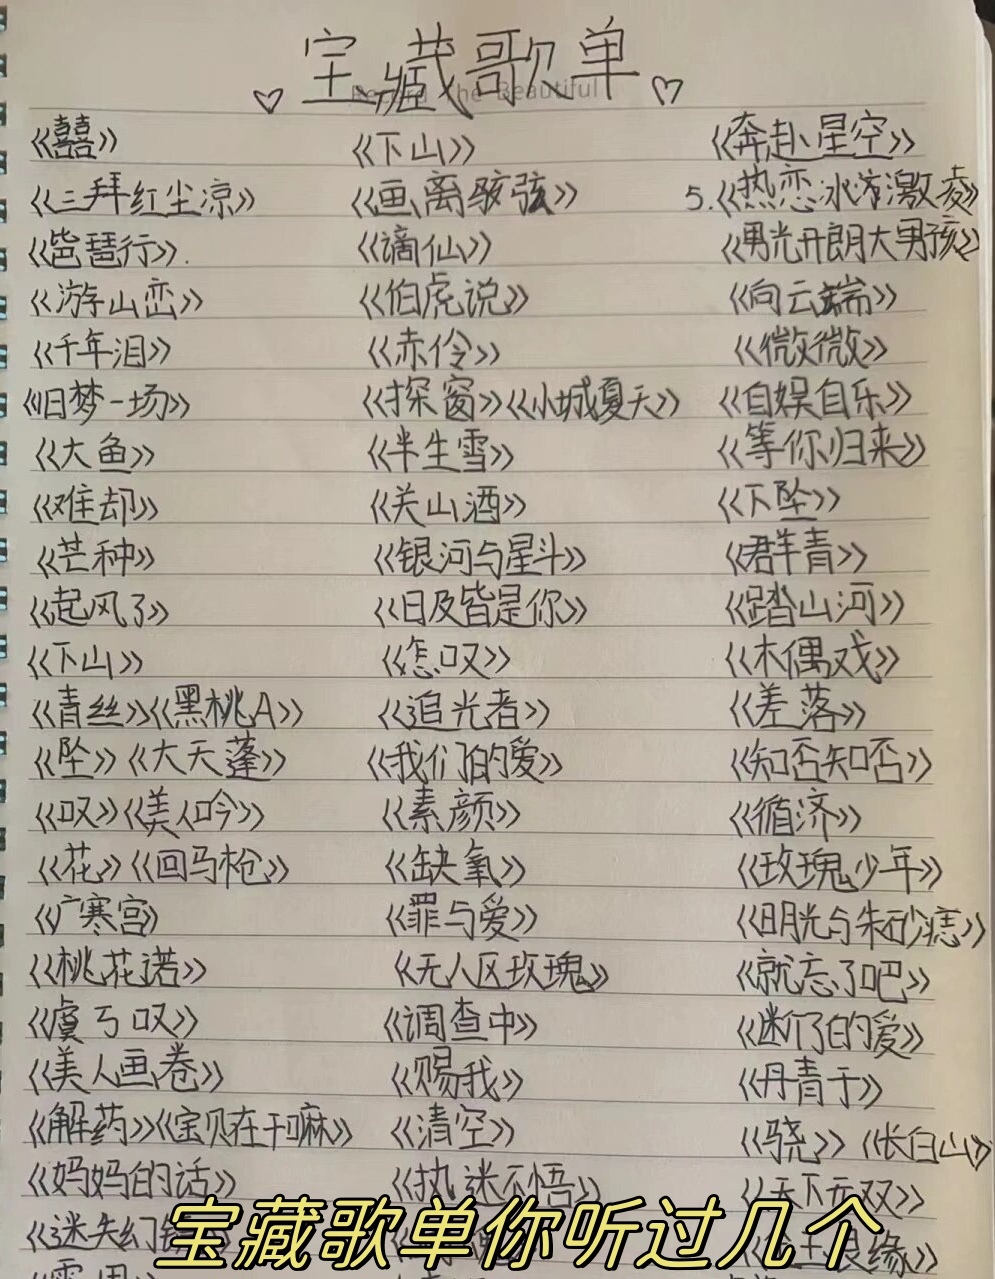 宝藏歌单
《囍》 《下山》 《奔赴星空》
《三拜红尘凉》 《画离弦》 5.《热恋冰激凌》
《琵琶行》. 《谪仙》 《男光开朗大男孩》
《游山恋》 《伯虎说》 《向云端》
《千年泪》 《赤伶》 《微微》
《旧梦一场》 《探窗》《小城夏天》 《自娱自乐》
《大鱼》 《半生雪》 《等你归来》
《难却》 《关山酒》 《下坠》
《芒种》 《银河与星斗》 《群青》
《起风了》 《日及皆是你》 《踏山河》
《下山》 《怎叹》 《木偶戏》
《青丝》《黑桃A》 《追光者》 《差落》
《坠》《大天蓬》 《我们的爱》 《知否知否》
《叹》《美人吟》 《素颜》 《循济》
《花》《回马枪》 《缺氧》 《玫瑰少年》
《广寒宫》 《罪与爱》 《明光与朱砂痣》
《桃花诺》 《无人区玫瑰》 《就忘了吧》
《虞兮叹》 《调查中》 《迷你的爱》
《美人画卷》 《赐我》 《丹青千》
《解药》《宝贝在干嘛》 《清空》 《骁》《长白山》
《妈妈的话》 《执迷不悟》 《天下无双》
《迷失幻 良缘》
宝藏歌单你听过几个